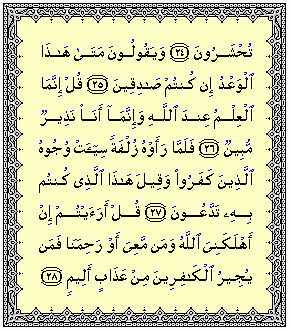 تُحۡشَرُونَ ٢٤ وَيَقُولُونَ مَتَىٰ هَٰذَا
ٱلۡوَعۡدُ إِن كُنتُمۡ صَٰدِقِينَ ٢٥ قُلۡ إِنَّمَا
ٱلۡعِلۡمُ عِندَ ٱللَّهِ وَإِنَّمَآ أَنَا۠ نَذِيرٞ
مُّبِينٞ ٢٦ فَلَمَّا رَأَوۡهُ زُلۡفَةٗ سِيٓـَٔتۡ وُجُوهُ
ٱلَّذِينَ كَفَرُواْ وَقِيلَ هَٰذَا ٱلَّذِي كُنتُم
بِهِۦ تَدَّعُونَ ٢٧ قُلۡ أَرَءَيۡتُمۡ إِنۡ
أَهۡلَكَنِيَ ٱللَّهُ وَمَن مَّعِيَ أَوۡ رَحِمَنَا فَمَن
يُجِيرُ ٱلۡكَٰفِرِينَ مِنۡ عَذَابٍ أَلِيمٖ ٢٨